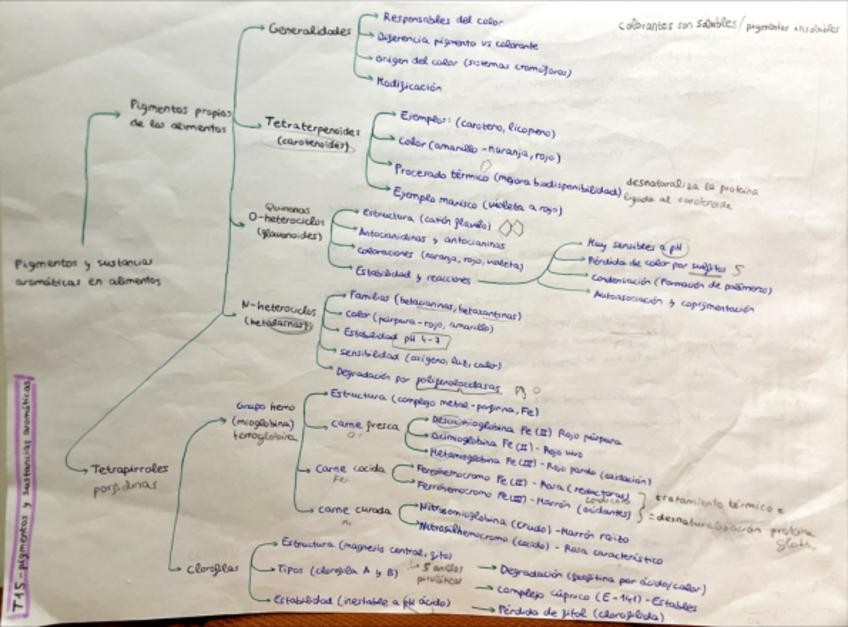 Colorantes son solubles / pigmentos insolubles
T15 - pigmentos y sustancias aromáticas
Pigmentos y sustancias
aromáticas en alimentos
Pigmentos propios
de los alimentos
Generalidades
Responsables del color
Diferencia pigmento vs colorante
Origen del color (sistemas cromóforos)
Modificación
Tetraterpenoides
(carotenoides)
Ejemplos: (caroteno, licopeno)
Color (amarillo - naranja, rojo)
Procesado térmico (mejora biodisponibilidad)
desnaturaliza la proteína
ligada al carotenoide
Ejemplo marisco (violeta a rojo)
Quinonas
O-heterociclos
(flavonoides)
Estructura (catión flavilio)
Antocianidinas y antocianinas
Coloraciones (naranja, rojo, violeta)
Estabilidad y reacciones
Muy sensibles a pH
Pérdida de color por sulfitos S
Condensación (formación de polímeros)
Autoasociación y copigmentación
N-heterociclos
(betalaínas)
Familias (betacianinas, betaxantinas)
Color (púrpura-rojo, amarillo)
Estabilidad pH 4-7
Sensibilidad (oxígeno, luz, calor)
Degradación por polifenoloxidasas
Tetrapirroles
porfidinas
Grupo hemo
(mioglobina)
hemoglobina
Estructura (complejo metal-porfirina, Fe)
Carne fresca
Desoximioglobina Fe (II) Rojo púrpura
Oximioglobina Fe (II) - Rojo vivo
Metamioglobina Fe (III) - Rojo pardo (oxidación)
Carne cocida
Ferrohemocromo Fe (II) - Rosa (reductoras)
Ferrihemocromo Fe (III) - Marrón (oxidantes)
tratamiento térmico =
= desnaturalización proteína
Carne curada
Nitrosomioglobina (crudo) - Marrón rojizo
Nitrosilhemocromo (cocido) - Rosa característico
Clorofilas
Estructura (magnesio central, fitol)
Tipos (clorofila A y B)
5 anillos
pirrólicos
Estabilidad (inestable a pH ácido)
Degradación (feofitina por ácido/calor)
Complejo cúprico (E-141) - Estables
Pérdida de fitol (clorofilida)